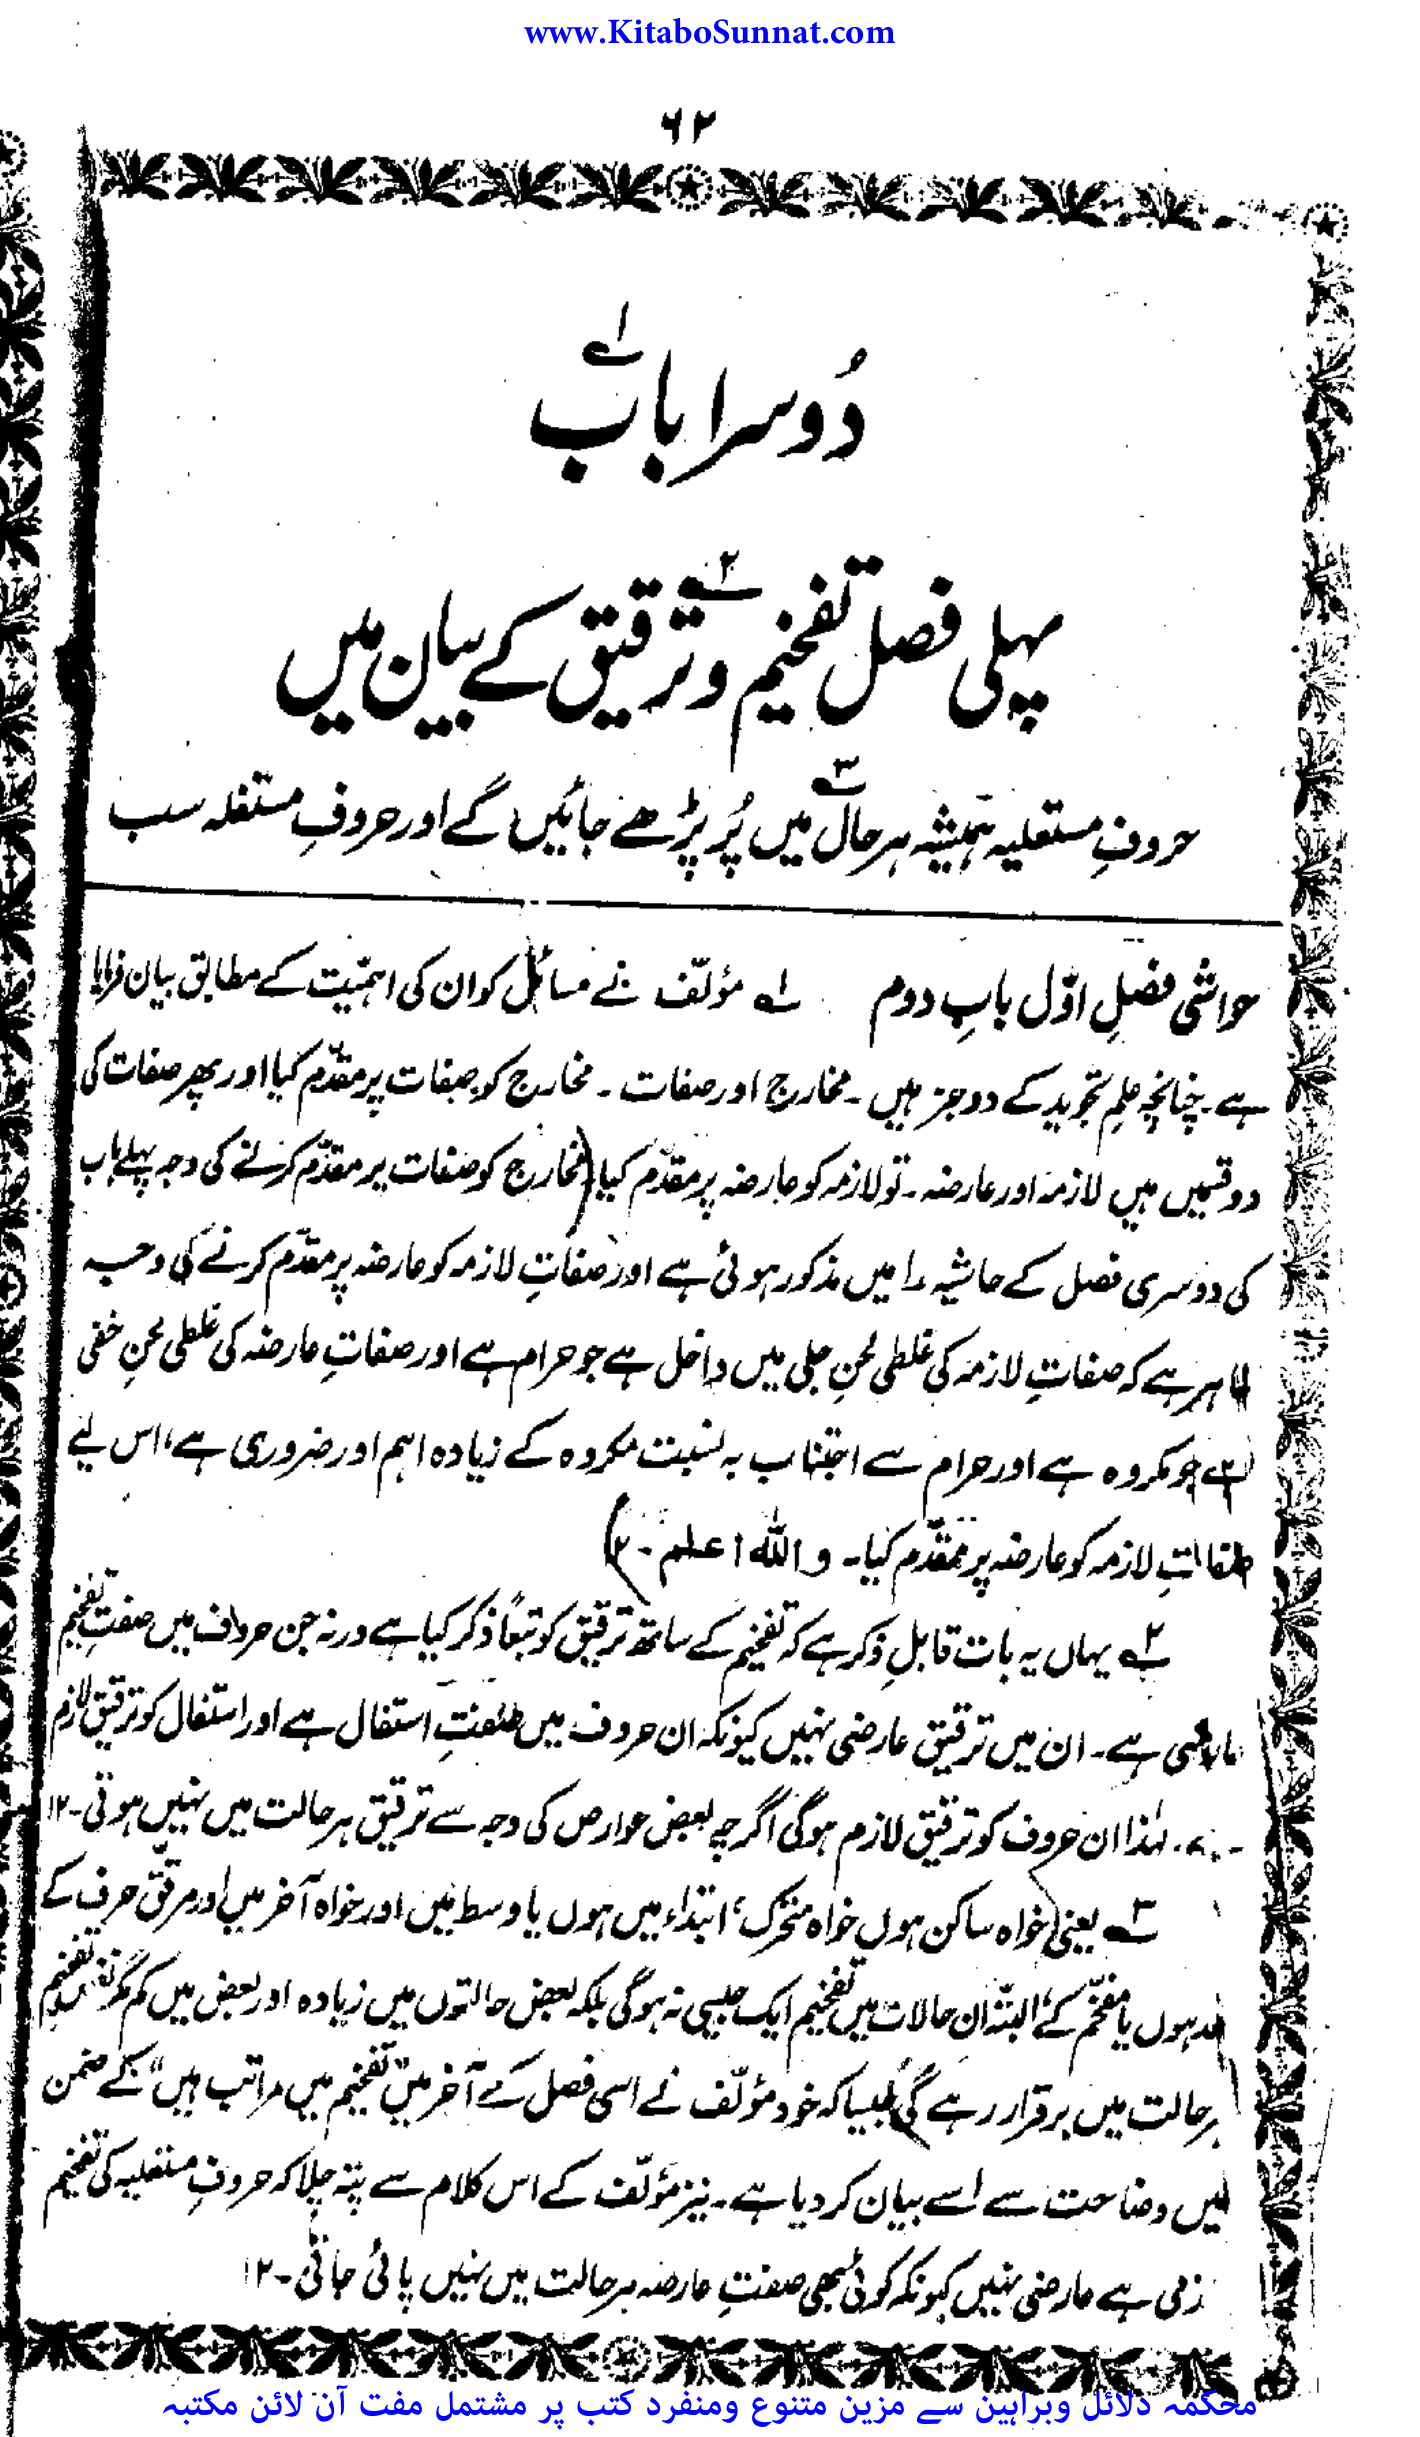 www.KitaboSunnat.com
۶۲
دُوسرا باب ۱؎
پہلی فصل تفخیم ۲؎ و ترقیق کے بیان میں
حروفِ مستعلیہ ہمیشہ ہر حال ۳؎ میں پُر پڑھے جائیں گے اور حروفِ مستفلہ سب
حواشی فصلِ اوّل بابِ دوم ۱؎ مؤلّف نے مسائل کو ان کی اہمیّت کے مطابق بیان فرمایا
ہے۔ چنانچہ علمِ تجوید کے دو جز ہیں۔ مخارج اور صفات۔ مخارج کو صفات پر مقدّم کیا اور پھر صفات کی
دو قسمیں ہیں لازمہ اور عارضہ۔ تو لازمہ کو عارضہ پر مقدّم کیا (مخارج کو صفات پر مقدّم کرنے کی وجہ پہلے باب
کی دوسری فصل کے حاشیہ ۱ میں مذکور ہوئی ہے اور صفاتِ لازمہ کو عارضہ پر مقدّم کرنے کی وجہ
ظاہر ہے کہ صفاتِ لازمہ کی غلطی لحنِ جلی میں داخل ہے جو حرام ہے اور صفاتِ عارضہ کی غلطی لحنِ خفی
ہے جو مکروہ ہے اور حرام سے اجتناب بہ نسبت مکروہ کے زیادہ اہم اور ضروری ہے، اس لیے
صفاتِ لازمہ کو عارضہ پر مقدّم کیا۔ واللہ اعلم۔ ۱۲)
۲؎ یہاں یہ بات قابلِ ذکر ہے کہ تفخیم کے ساتھ ترقیق کو تبعاً ذکر کیا ہے ورنہ جن حروف میں صفتِ تفخیم
عارضی ہے۔ ان میں ترقیق عارضی نہیں کیونکہ ان حروف میں صفتِ استفال ہے اور استفال کو ترقیق لازم
لہٰذا ان حروف کو ترقیق لازم ہوگی اگرچہ بعض عوارض کی وجہ سے ترقیق ہر حالت میں نہیں ہوتی۔ ۱۲
۳؎ یعنی خواہ ساکن ہوں خواہ متحرک، ابتداء میں ہوں یا وسط میں اور خواہ آخر میں اور مرقّق حرف کے
بعد ہوں یا مفخّم کے، البتّہ ان حالات میں تفخیم ایک جیسی نہ ہوگی بلکہ بعض حالتوں میں زیادہ اور بعض میں کم مگر نفسِ تفخیم
ہر حالت میں برقرار رہے گی جیسا کہ خود مؤلّف نے اسی فصل کے آخر میں "تفخیم میں مراتب ہیں" کے ضمن
میں وضاحت سے اسے بیان کر دیا ہے۔ نیز مؤلّف کے اس کلام سے پتہ چلا کہ حروفِ مستعلیہ کی تفخیم
لازمی ہے عارضی نہیں کیونکہ کوئی بھی صفتِ عارضہ ہر حالت میں نہیں پائی جاتی۔ ۱۲
محکمہ دلائل وبراہین سے مزین متنوع ومنفرد کتب پر مشتمل مفت آن لائن مکتبہ